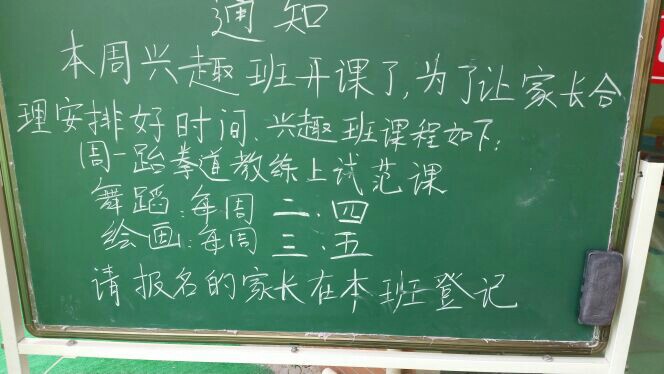 通知
本周兴趣班开课了,为了让家长合
理安排好时间、兴趣班课程如下:
周一跆拳道教练上试范课
舞蹈:每周二、四
绘画:每周三、五
请报名的家长在本班登记